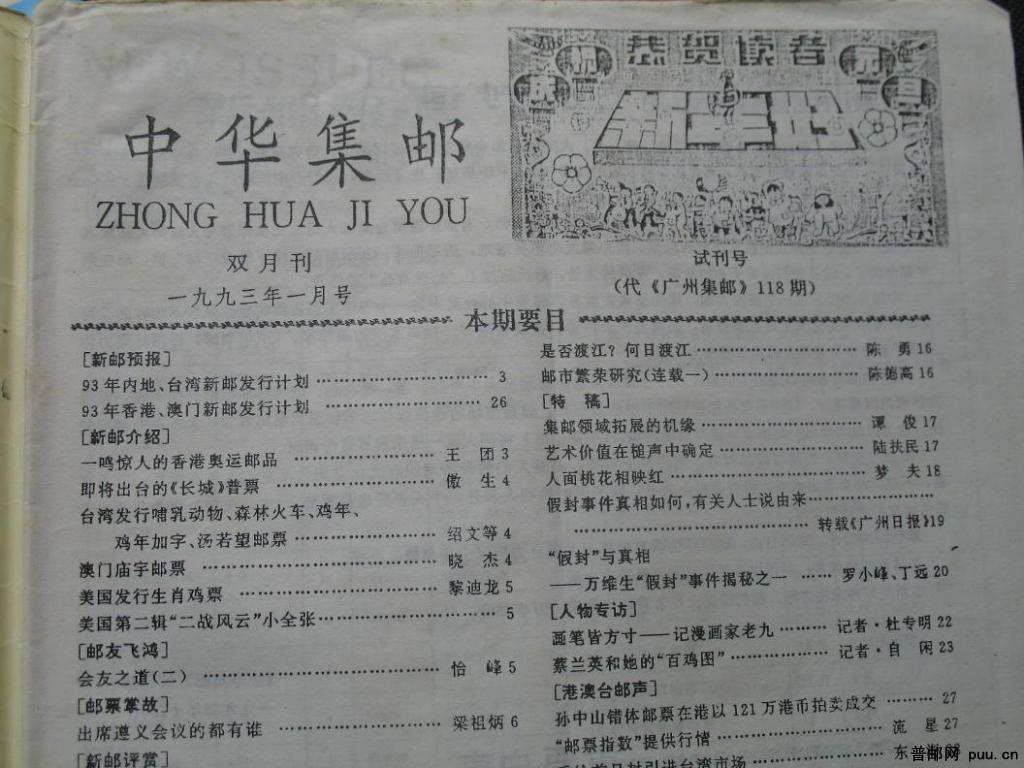 中华集邮
ZHONG HUA JI YOU
双月刊
一九九三年一月号
恭贺读者
试刊号
(代《广州集邮》118期)
本期要目
[新邮预报]
93年内地、台湾新邮发行计划 …… 3
93年香港、澳门新邮发行计划 …… 26
[新邮介绍]
一鸣惊人的香港奥运邮品 …… 王 团 3
即将出台的《长城》普票 …… 傲 生 4
台湾发行哺乳动物、森林火车、鸡年、
鸡年加字、汤若望邮票 …… 绍文等 4
澳门庙宇邮票 …… 晓 杰 4
美国发行生肖鸡票 …… 黎迪龙 5
美国第二辑“二战风云”小全张 …… 5
[邮友飞鸿]
会友之道(二) …… 怡 峰 5
[邮票掌故]
出席遵义会议的都有谁 …… 梁祖炳 6
[新邮评赏]
是否渡江?何日渡江 …… 陈 勇 16
邮市繁荣研究(连载一) …… 陈 高 16
[特 稿]
集邮领域拓展的机缘 …… 谭 俊 17
艺术价值在槌声中确定 …… 陆扶民 17
人面桃花相映红 …… 梦 夫 18
假封事件真相如何,有关人士说由来 ……
…… 转载《广州日报》19
“假封”与真相
——万维生“假封”事件揭秘之一 …… 罗小峰、丁远 20
[人物专访]
画笔皆方寸——记漫画家老九 …… 记者·杜专明 22
蔡兰英和她的“百鸡图” …… 记者·自 闲 23
[港澳台邮声]
孙中山错体邮票在港以121万港币拍卖成交 …… 27
“邮票指数”提供行情 …… 流 星 27
首日封引进台湾市场 …… 东
普邮网 puu.cn